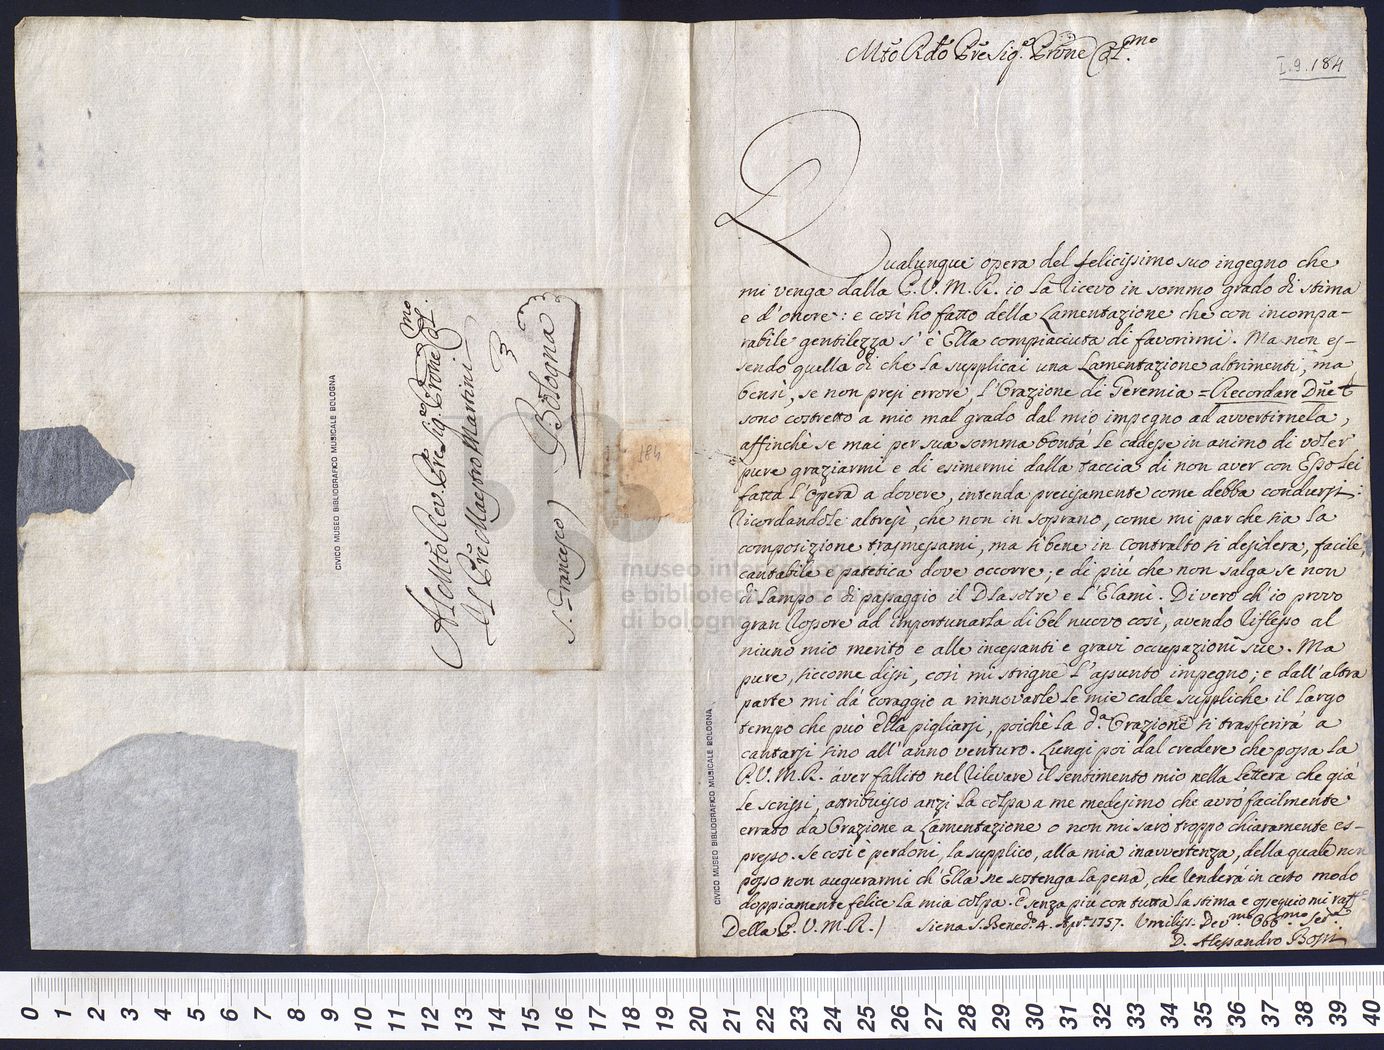 Al Mto Rev. Pre Sig.e Prone Col.mo
Il Pre Maestro Martini
S. Francesco) Bologna
CIVICO MUSEO BIBLIOGRAFICO MUSICALE BOLOGNA
184
Mto Rdo Pre Sig.e Prone Col.mo
I.9.184
Qualunque opera del felicissimo suo ingegno che
mi venga dalla P.V.M.R. io la ricevo in sommo grado di stima
e d'onore: e così ho fatto della Lamentazione che con incompa-
rabile gentilezza s'è Ella compiacciuta di favorirmi. Ma non es-
sendo quella di che la supplicai una Lamentazione altrimenti, ma
bensì, se non presi errore, l'Orazione di Geremia = Recordare Dne
sono costretto a mio mal grado dal mio impegno ad avvertirnela,
affinchè se mai per sua somma bontà le cadesse in animo di voler
pure graziarmi e di esimermi dalla taccia di non aver con Esso Lei
fatta l'opera a dovere, intenda precisamente come debba condursi:
ricordandole altresì, che non in soprano, come mi par che sia la
composizione trasmessami, ma sibene in Contralto si desidera, facile
cantabile e patetica dove occorre; e di più che non salga se non
di lampo o di passaggio il Dlasolre e l'Elami. Di vero ch'io provo
gran rossore ad importunarla di bel nuovo così, avendo riflesso al
niuno mio merito e alle incessanti e gravi occupazioni sue. Ma
pure, siccome dissi, così mi strigne l'assunto impegno; e dall'altra
parte mi dà coraggio a rinnovarle le mie calde suppliche il largo
tempo che può Ella pigliarsi, poichè la d.a Orazione si trasferirà a
cantarsi sino all'anno venturo. Lungi poi dal credere che possa la
P.V.M.R. aver fallito nel rilevare il sentimento mio nella lettera che già
le scrissi, attribuisco anzi la colpa a me medesimo che avrò facilmente
errato da Orazione a Lamentazione o non mi sarò troppo chiaramente es-
presso. Se così è perdoni, la supplico, alla mia inavvertenza, della quale non
posso non augurarmi ch'Ella ne sostenga la pena, che renderà in certo modo
doppiamente felice la mia colpa. E senza più con tutta la stima e ossequio mi
Della P.V.M.R.) Siena S. Bened.o 4. Apr.e 1757. Umiliss. Dev.mo Obb.mo Ser.e
D. Alessandro Bossi
CIVICO MUSEO BIBLIOGRAFICO MUSICALE BOLOGNA
museo internazionale
e biblioteca della musica
di bologna
0 1 2 3 4 5 6 7 8 9 10 11 12 13 14 15 16 17 18 19 20 21 22 23 24 25 26 27 28 29 30 31 32 33 34 35 36 37 38 39 40